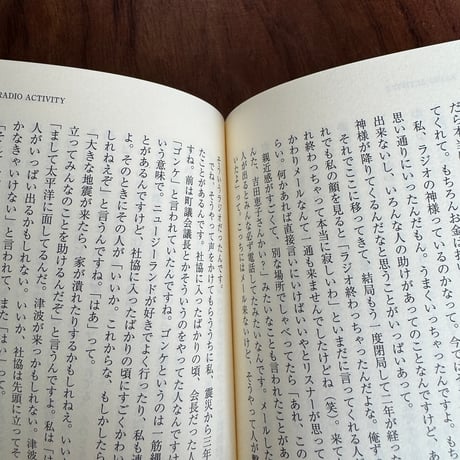 だら本当
てくれて。もちろんお金は
私、ラジオの神様っているのかなって。
思い通りにいったんだもん。うまくいっちゃったんだけど、
出来ないし、いろんな人の助けがあってのことなんですけど、あ
神様が降りてくるんだなと思うことがいっぱいあって。
それでここに移ってきて、結局もう一度閉局して二年が経っ
でも私の顔を見ると「ラジオ終わっちゃったんだよな。俺ず
れ終わっちゃって本当に寂しいわ」とまだに言ってくれる人
かわりメールなんて一通も来ませんでしたけどね（笑）。来て
らい。何かあれば直接言いにいけばいいやとリスナーが思って
親近感がすごくて、別な場所でしゃべってたら「あれ、この
んた、吉田恵子さんかい？」みたいなことも言われたことがあ
人が出るとみんな必ず電話したみたいなんですよ。メールした
RADIO ACTIVITY
そういうラジオだったんです。
かけてもらううちに私、震災から三年
たことがあるんです。社協に入ったばかりの頃、会長だった人
すね。前は町議会議長とかそういうのをやってた人なんですけ
「ゴンケ」と言われていたんですね。ゴンケというのは一筋縄
いう意味で。ニュージーランドが好きでよく行ったり、私も連
とがあるんですけど、社協に入ったばかりの頃にすごくかわい
よ。そのときにその人が「いいか。これからな、もしかしたら
「大きな地震が来たら、家が潰れたりするかもしれねえ。いい
立ってみんなのことを助けるんだぞ」と言うんですね。「はあ」って。
「まして太平洋に面してるんだ。津波が来っかもしれない。津波
人がいっぱい出るかもしれない。いいか、社協は先頭に立ってそ
かなきゃいけない」と言うんですよ。私は「はい」って。
言われて、また「はい」って。